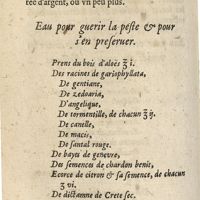 ree d'argent, ou vn peu plus.
Eau pour guerir la peste & pour
s'en preseruer.
Prens du bois d'aloës ℥ i.
Des racines de gariophyllata,
De gentiane,
De zedoaria,
D'angelique,
De tormentille, de chacun ℥ ij.
De canelle,
De macis,
De santal rouge.
De bayes de geneure,
Des semences de chardon benis,
Ecorce de citron & sa semence, de chacun
℥ vi.
De dictamne de Crete sec.